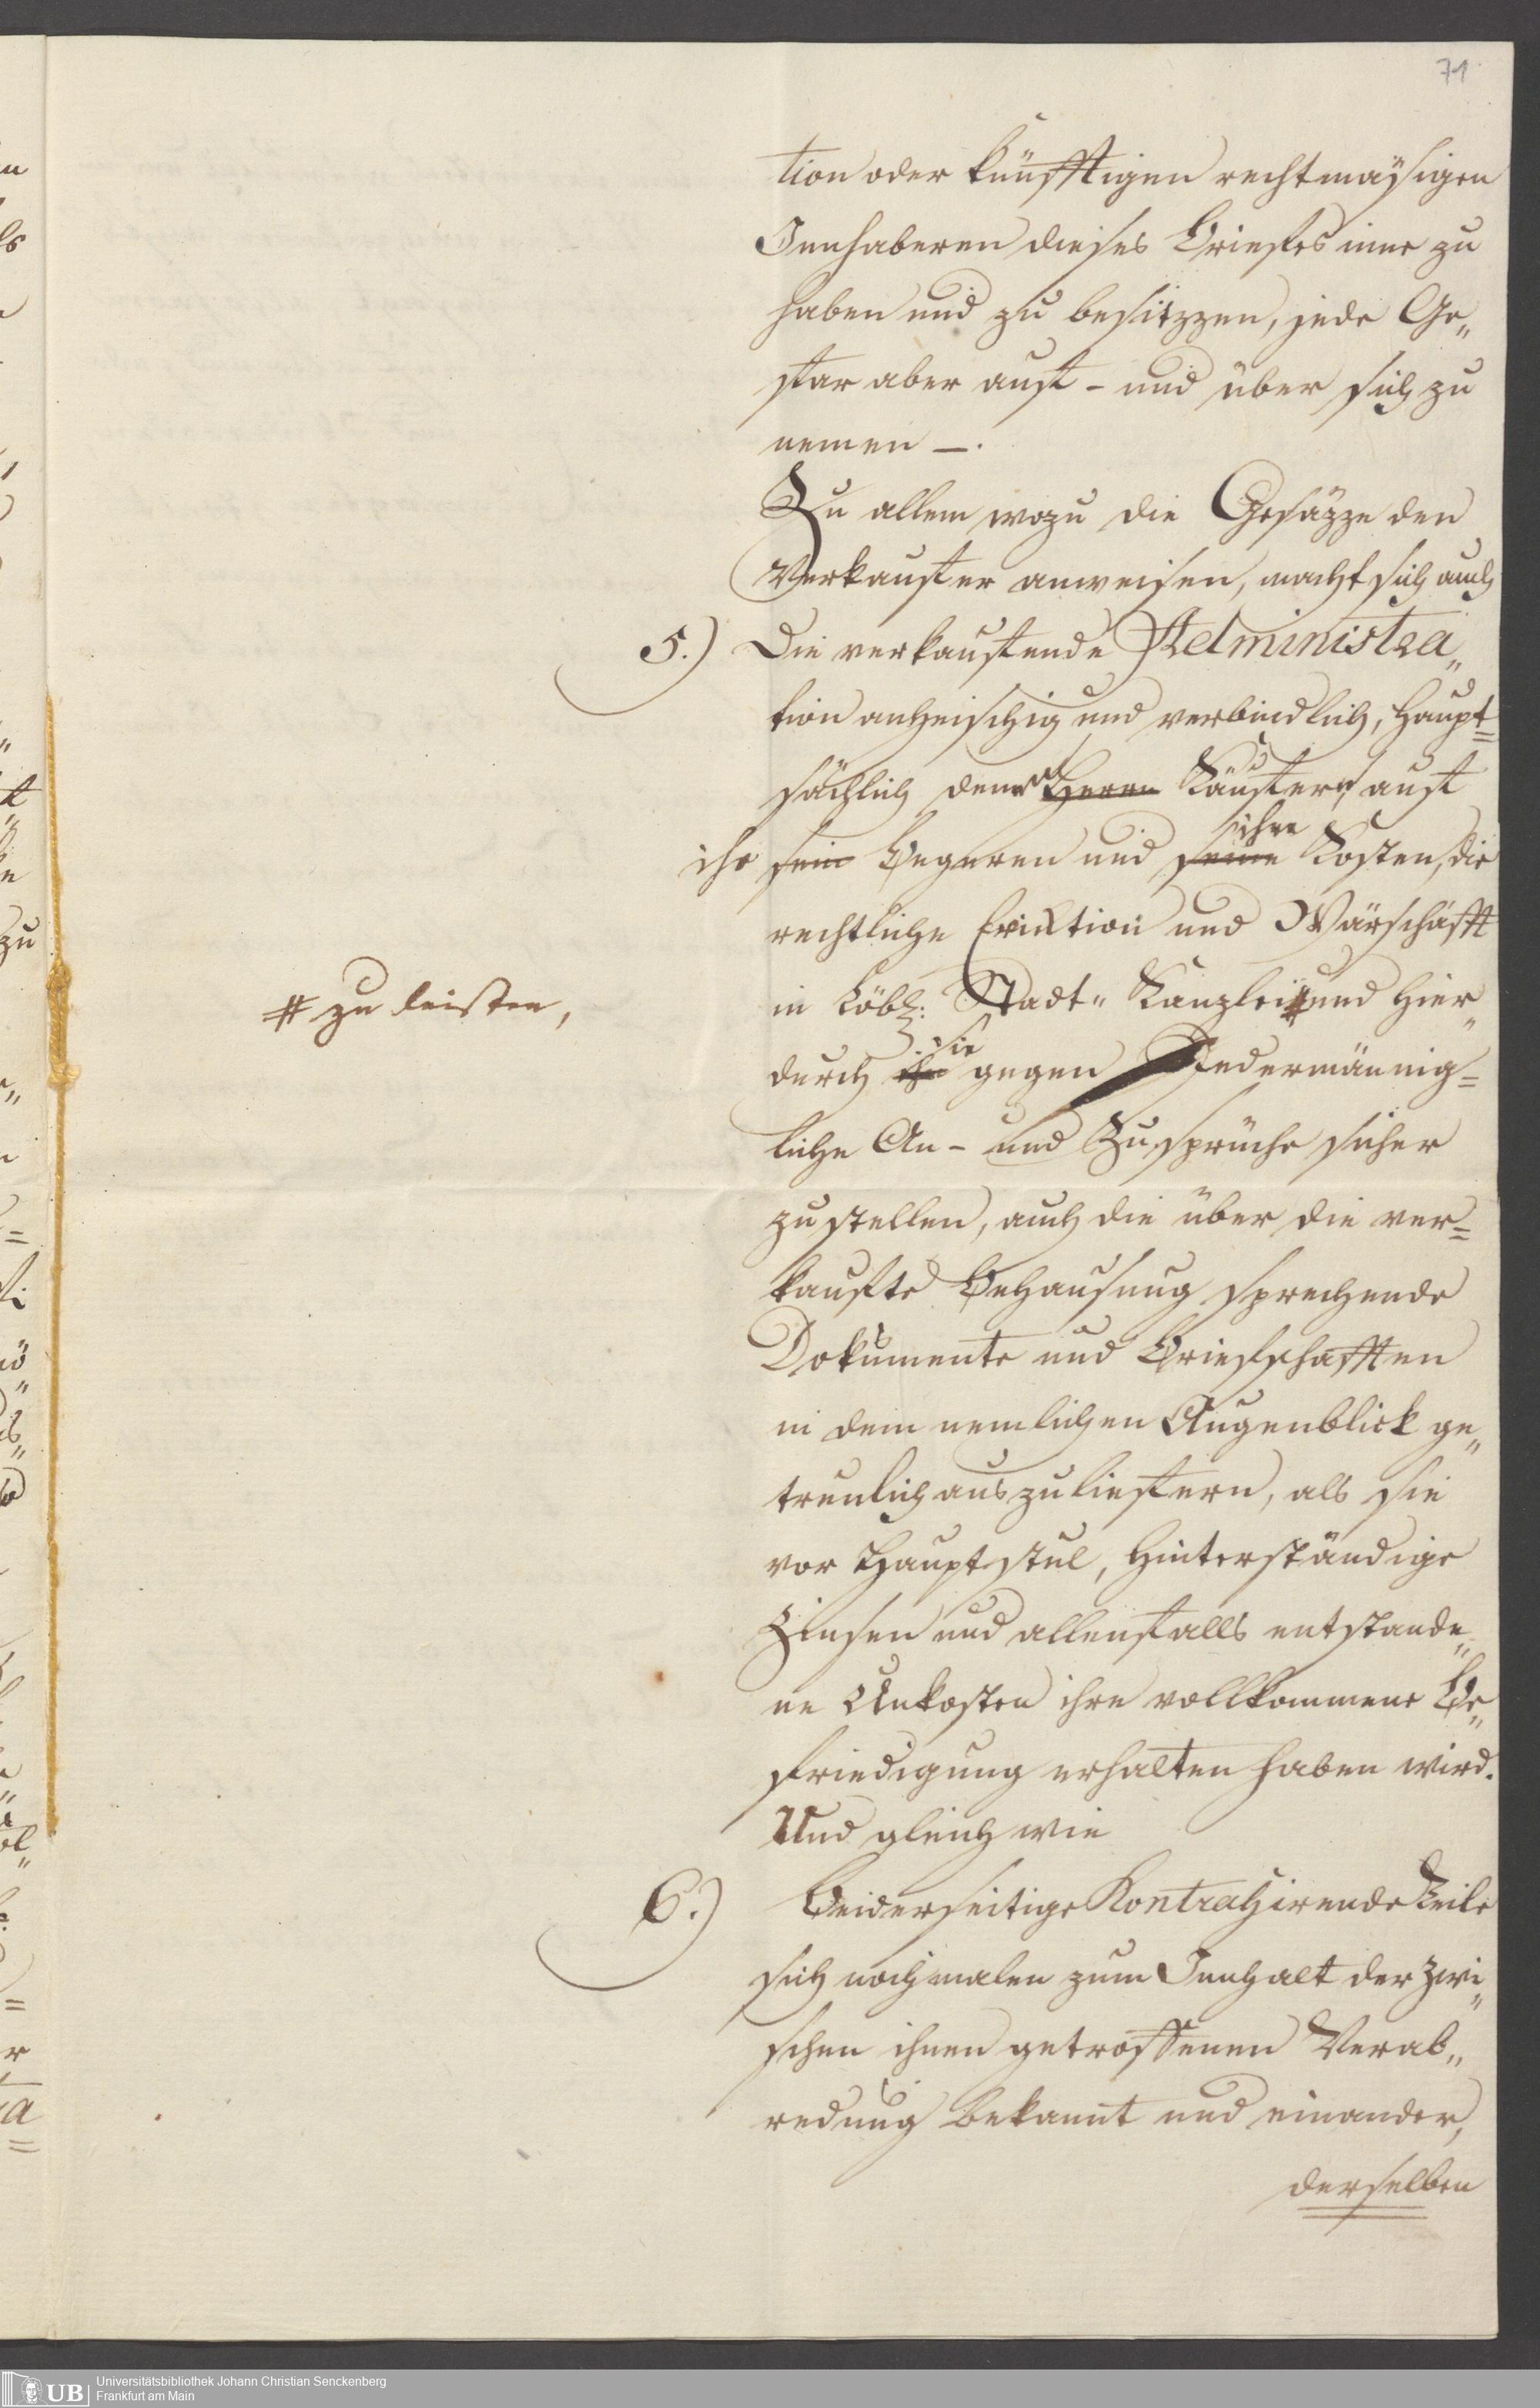 71
tion oder künfftigen rechtmäsigen
Innhaberen dieses Briefes inne zu
haben und zu besitzzen, jede Ge„
far aber auf - und über sich zu
nemen —.
Zu allem wozu die Gesäzze den
Verkaufer anweisen, macht sich auch
5.) Die verkaufende Administra„
tion anheischig und verbindlich, haupt=
sächlich denen Herrn Käufern, auf
ihr sein Begeren und seine ihre Kosten, die
rechtliche Eviktion und Wärschafft
in Löbl: Stadt„ Kanzlei # und hier„
# zu leisten,
durch ihn sie gegen Jedermännig=
liche An - und Zusprüche sicher
zustellen, auch die über die ver=
kaufte Behausung sprechende
Dokumente und Briefschafften
in dem nemlichen Augenblick ge„
treulich auszuliefern, als sie
vor Hauptstul, hinterständige
Zinsen und allenfalls entstande„
ne Unkosten ihre vollkommene Be„
friedigung erhalten haben wird.
Und gleich wie
6.) Beiderseitige Kontrahirende Teile
sich nochmalen zum Innhalt der zwi„
schen ihnen getroffenen Verab„
redung bekannt und einander,
derselben
UB Universitätsbibliothek Johann Christian Senckenberg
Frankfurt am Main